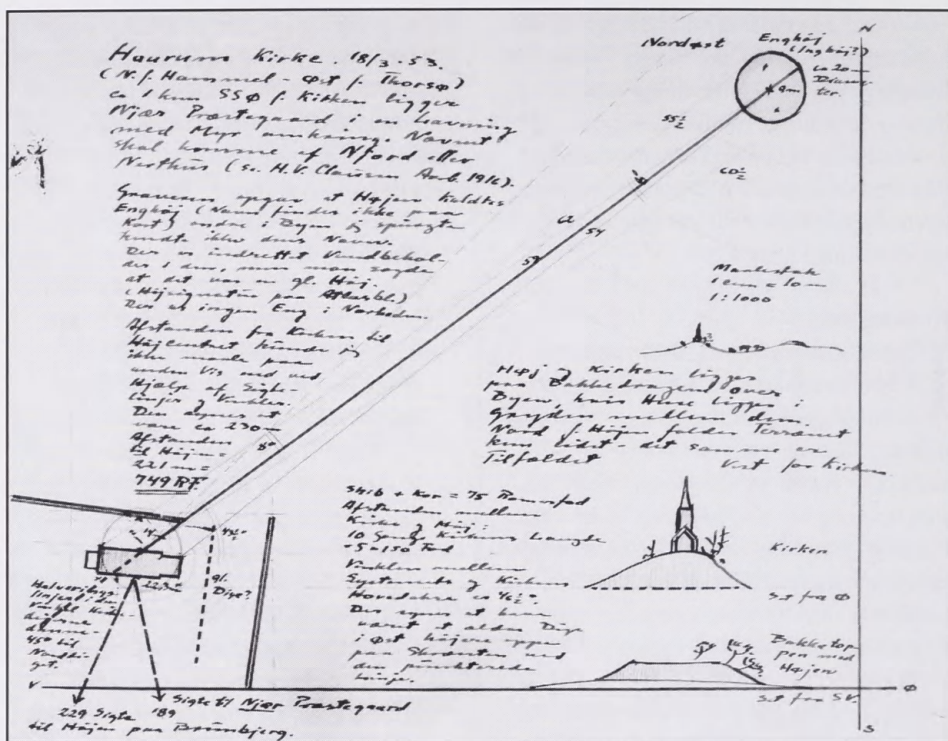 Haurum Kirke. 18/3-53.
(N. f. Hammel - Øst f. Thorsø)
ca 1 km SSØ f. Kirken ligger
Njær Præstegaard i en Lavning
med Myr omkring. Navnet
skal komme af Njord eller
Nerthus (se H.V. Clausen Aarb. 1916).
Graveren opgav at Højen kaldtes
Enghöj (Navn findes ikke paa
Kort) andre i Byen jeg spurgte
kendte ikke dens Navn.
Der er indrettet Vandbehol-
der i den, men man sagde
at det var en gl. Høj.
(Højsignatur paa Atlasbl.)
Der er ingen Eng i Nærheden.
Afstanden fra Kirken til
Højcentret kunde jeg
ikke maale paa
anden Vis end ved
Hjælp af Sigte-
linjer og Vinkler.
Den synes at
være ca 230 m
Afstanden
til Höjen =
221 m =
749 RF
Nordøst
Enghöj
(Inghöj?)
ca 20 m
Diame-
ter.
4m
N
55½
60½
a
59
54
50
Maalestok
1 cm = 10 m
1:1000
Høj og Kirken ligger
paa Bakkedragen over
Byen, hvis Huse ligger i
Gryden mellem dem.
Nord f. Højen falder Terrænet
kun lidt - det samme er
Tilfældet Vest for Kirken
Skib + Kor = 75 Romerfod
Afstanden mellem
Kirke og Høj:
10 Gange Kirkens Længde
Vinklen mellem
Systemets og Kirkens
Hovedakse ca
Der synes at have
været et ældre Dige
i Øst højere oppe
paa Skrænten ved
den punkterede
Linje.
Kirken
Set fra Ø
Bakketop-
pen med
Højen
Set fra SV.
gl.
Dige?
22.3m
Halverings-
450 til
V
Ø
S
229 Sigte
til Höjen paa Brünbjerg.
189
Sigte til Njær Præstegaard